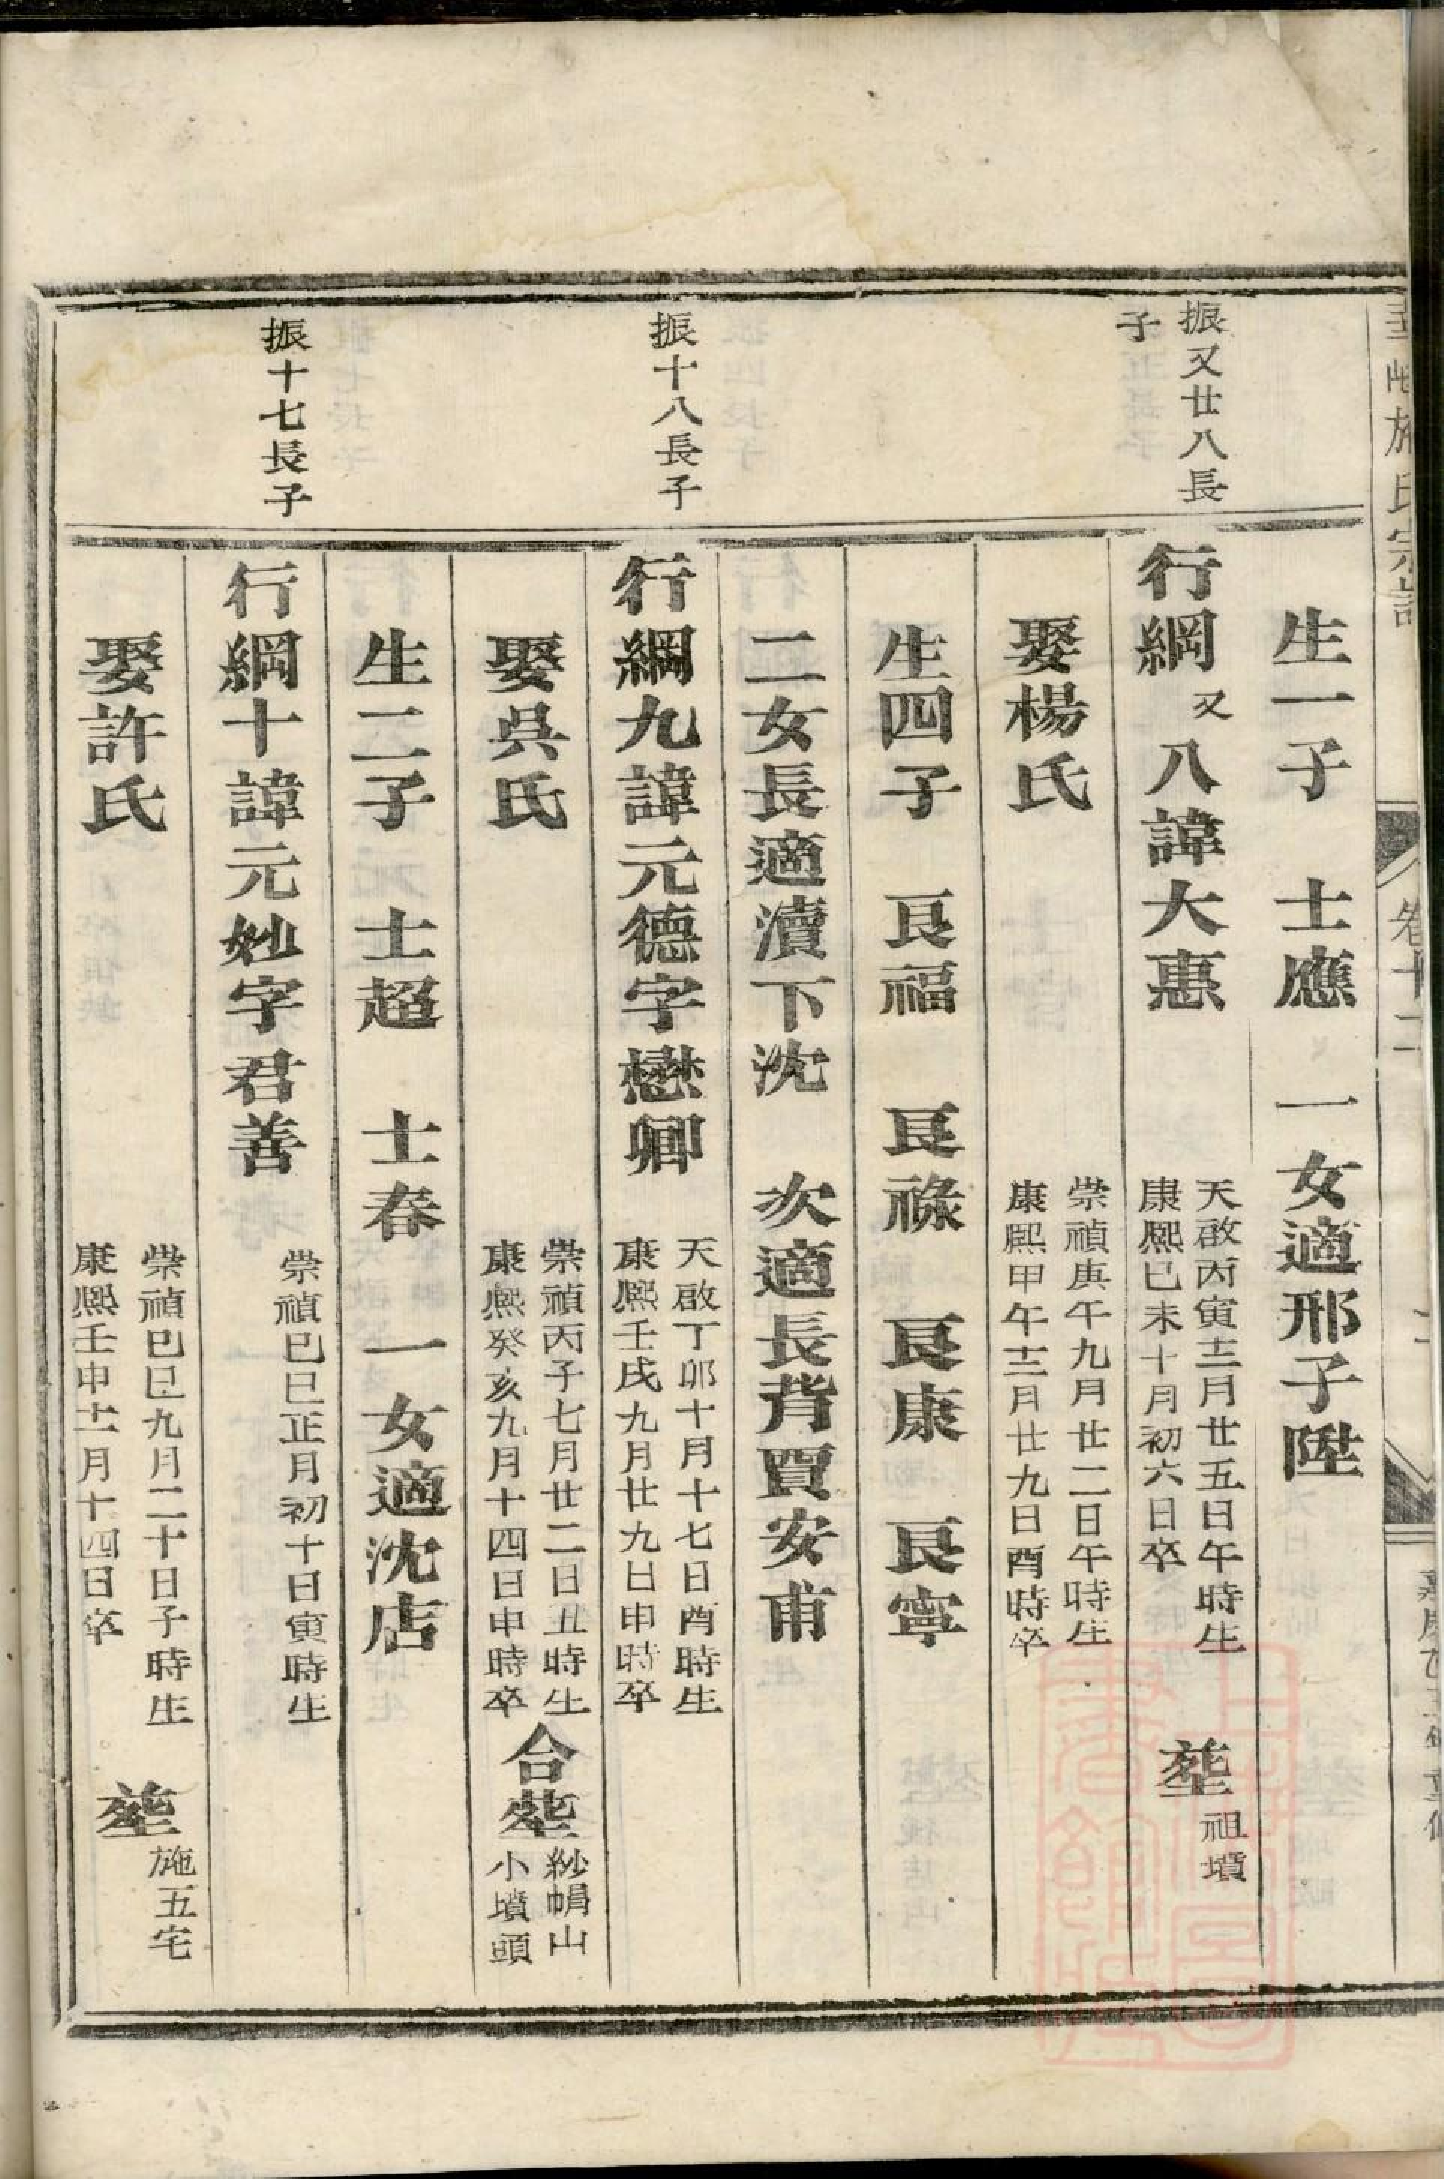 施氏宗譜
卷十二
生一子　士應　一女適邢子陞
振又廿八長
子
行綱又八諱大惠
天啟丙寅十二月廿五日午時生
康熙己未十月初六日卒
塟祖墳
娶楊氏
崇禎庚午九月廿二日午時生
康熙甲午十二月廿九日酉時卒
生四子　艮福　艮祿　艮康　艮寧
二女長適瀆下沈　次適長背賈安甫
振十八長子
行綱九諱元德字懋卿
天啟丁卯十月十七日酉時生
康熙壬戌九月廿九日申時卒
娶吳氏
崇禎丙子七月廿二日丑時生
康熙癸亥九月十四日申時卒
合塟
紗帽山
小墳頭
生二子　士超　士春　一女適沈店
振十七長子
行綱十諱元妙字君善
崇禎己巳正月初十日寅時生
娶許氏
崇禎己巳九月二十日子時生
康熙壬申十一月十四日卒
塟施五宅